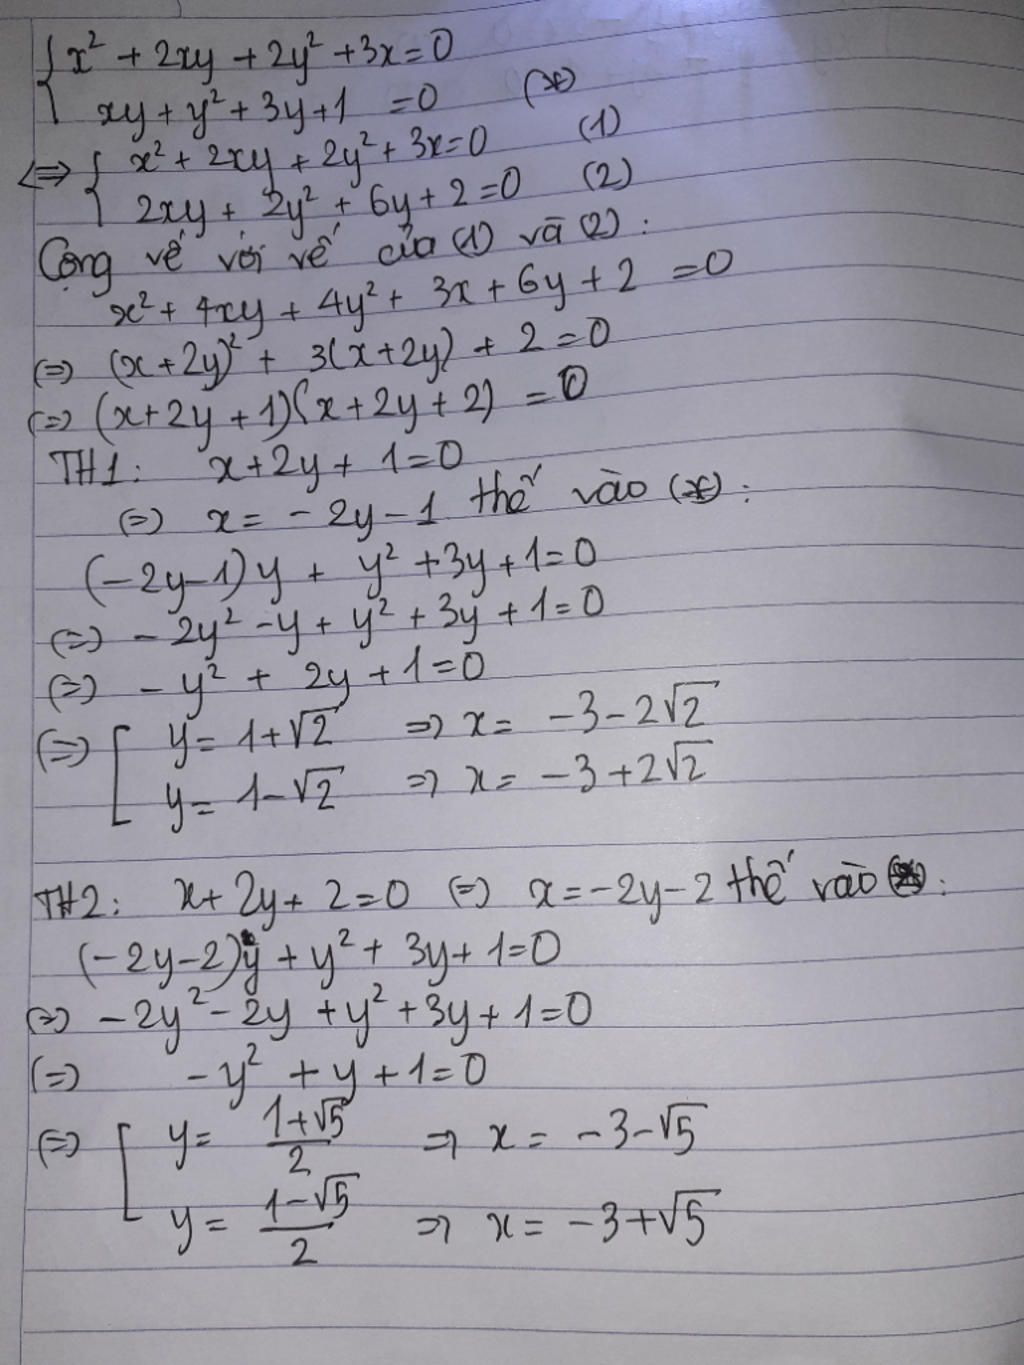 { x² + 2xy + 2y² + 3x = 0
xy + y² + 3y + 1 = 0 (*)
⇔ { x² + 2xy + 2y² + 3x = 0 (1)
2xy + 2y² + 6y + 2 = 0 (2)
Cộng vế với vế của (1) và (2) :
x² + 4xy + 4y² + 3x + 6y + 2 = 0
(=) (x + 2y)² + 3(x + 2y) + 2 = 0
(=) (x + 2y + 1)(x + 2y + 2) = 0
TH1: x + 2y + 1 = 0
(=) x = - 2y - 1 thế vào (*) :
(- 2y - 1) y + y² + 3y + 1 = 0
(=) - 2y² - y + y² + 3y + 1 = 0
(=) - y² + 2y + 1 = 0
(=) [ y = 1 + √2 => x = - 3 - 2√2
y = 1 - √2 => x = - 3 + 2√2
TH2: x + 2y + 2 = 0 (=) x = - 2y - 2 thế vào (*) :
(- 2y - 2) y + y² + 3y + 1 = 0
(=) - 2y² - 2y + y² + 3y + 1 = 0
(=) - y² + y + 1 = 0
(=) [ y = (1 + √5)/2 => x = - 3 - √5
y = (1 - √5)/2 => x = - 3 + √5